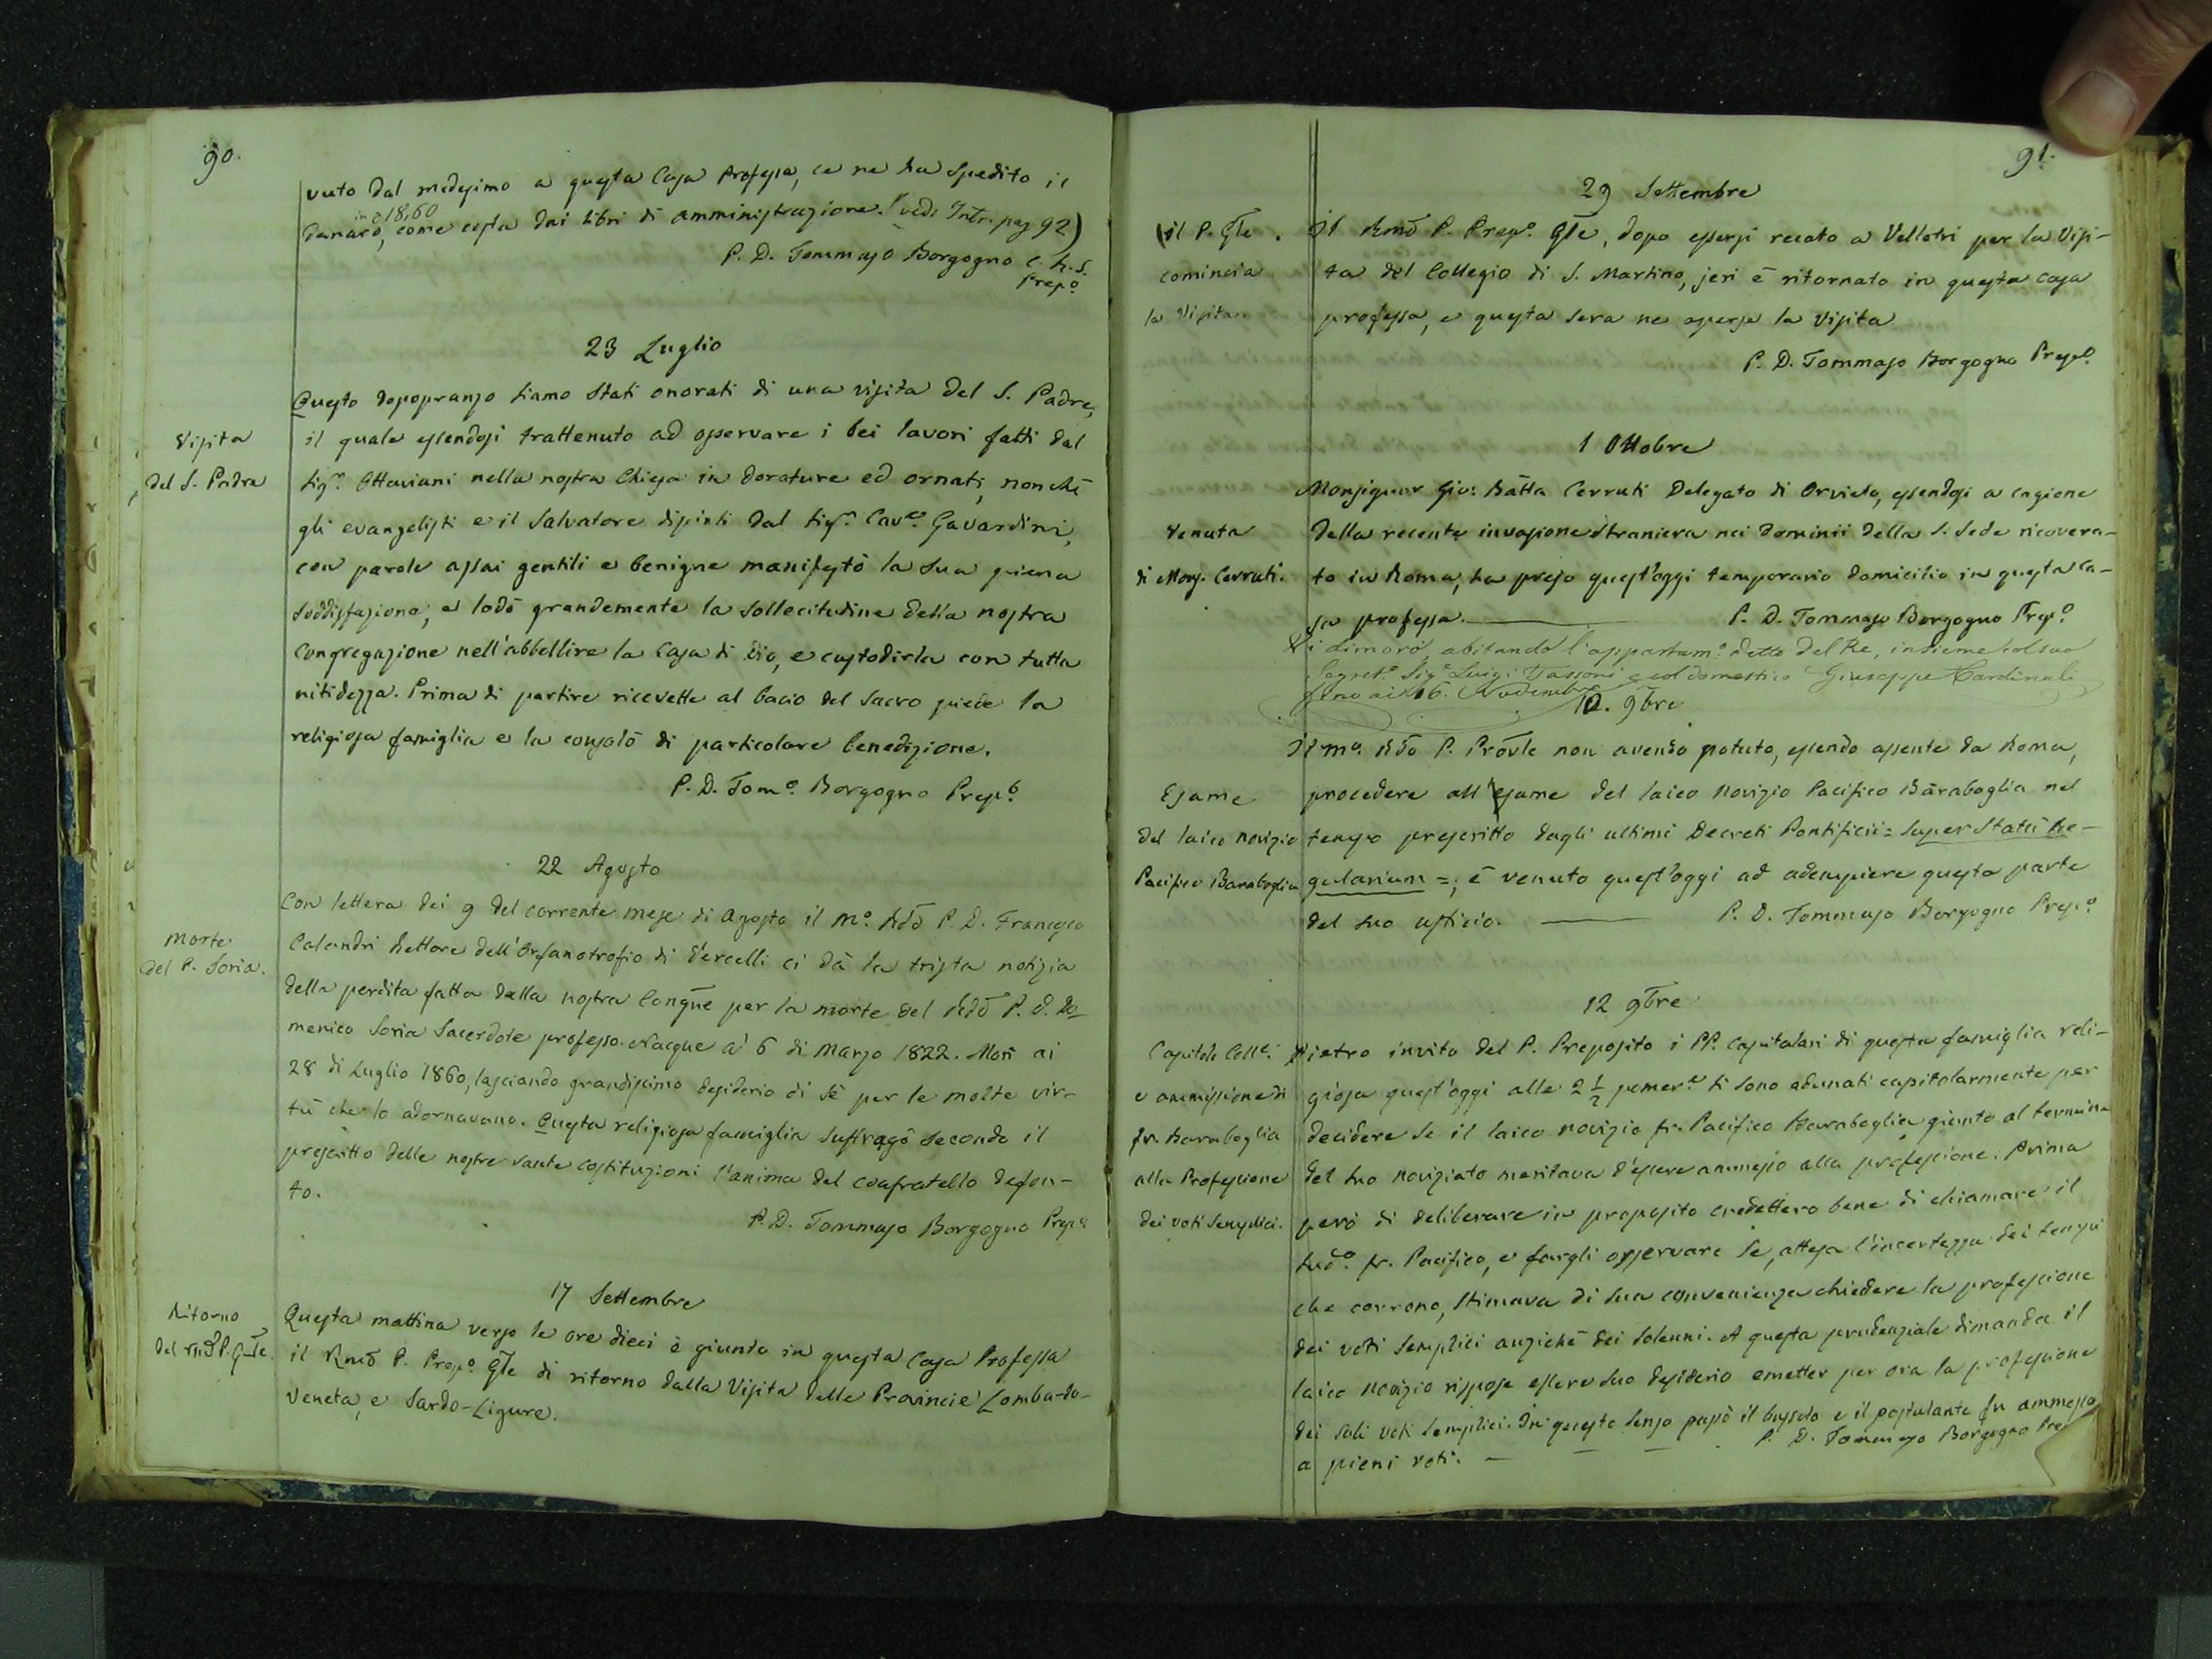 90.
vuto dal medesimo a questa Casa Professa, ce ne ha spedito il
in 18,60
danaro, come costa dai libri di amministrazione. (vedi Intr. pag 92)
P. D. Tommaso Borgogno C. R. S.
Prepo
23 Luglio
Visita
del S. Padre
Questo dopopranzo siamo stati onorati di una visita del S. Padre,
il quale essendosi trattenuto ad osservare i bei lavori fatti dal
Sigr. Ottaviani nella nostra Chiesa in dorature ed ornati, nonché
gli evangelisti e il Salvatore dipinti dal Sigr. Cave. Gavardini,
con parole assai gentili e benigne manifestò la sua piena
soddisfazione, e lodò grandemente la sollecitudine della nostra
Congregazione nell'abbellire la Casa di Dio, e custodirla con tutta
nitidezza. Prima di partire ricevette al bacio del sacro piede la
religiosa famiglia e la consolò di particolare benedizione.
P. D. Tomo. Borgogno Prepo.
22 Agosto
Morte
del P. Soria.
Con lettera dei 9 del corrente mese di Agosto il Mo. Rdo P. D. Francesco
Calandri Rettore dell'Orfanotrofio di Vercelli ci dà la trista notizia
della perdita fatta dalla nostra Congne per la morte del Rdo P. D. Do-
menico Soria Sacerdote professo. Nacque a' 6 di Marzo 1822. Morì ai
28 di Luglio 1860, lasciando grandissimo desiderio di sè per le molte vir-
tù che lo adornavano. Questa religiosa famiglia suffragò secondo il
prescritto delle nostre sante costituzioni l'anima del confratello defon-
to.
P. D. Tommaso Borgogno Prepo.
17 Settembre
Ritorno
del Rmo P. Gle.
Questa mattina verso le ore dieci è giunto in questa Casa Professa
il Rmo P. Prepo. Gle di ritorno dalla Visita delle Provincie Lombardo-
Veneta, e Sardo-Ligure.
91.
29 Settembre
(il P. Gle.
comincia
la Visita
Il Rmo P. Prepo. Gle, dopo essersi recato a Velletri per la Visi-
ta del Collegio di S. Martino, jeri è ritornato in questa casa
professa, e questa sera ne aperse la visita
P. D. Tommaso Borgogno Prepo.
1 Ottobre
Venuta
di Mons. Cerruti.
Monsignor Gio: Batta Cerruti Delegato di Orvieto, essendosi a cagione
della recente invasione straniera nei dominii della S. Sede ricovera-
to in Roma, ha preso quest'oggi temporario domicilio in questa ca-
sa professa. P. D. Tommaso Borgogno Prepo
Vi dimorò abitando l'appartamo. detto del Re, insieme col suo
Segreto. Sigr Luigi Tassoni e col domestico Giuseppe Cardinali
fino ai 16. Novembre
12. 9bre
Esame
del laico novizio
Pacifico Baraboglia
Il Mo. Rdo P. Provle non avendo potuto, essendo assente da Roma,
procedere all'esame del laico novizio Pacifico Baraboglia nel
tempo prescritto dagli ultimi Decreti Pontificii = Super Statu Re-
gularium =, è venuto quest'oggi ad adempiere questa parte
del suo officio. P. D. Tommaso Borgogno Prepo.
12 9bre
Capitolo Colle.
e ammissione di
fr. Baraboglia
alla Professione
dei voti semplici.
Dietro invito del P. Preposito i PP. Capitolari di questa famiglia reli-
giosa quest'oggi alle 2 1/2 pomere. si sono adunati capitolarmente per
decidere se il laico novizio fr. Pacifico Baraboglia giunto al termine
del suo noviziato meritava d'essere ammesso alla professione. Prima
però di deliberare in proposito credettero bene di chiamare il
sudo. fr. Pacifico, e fargli osservare se, attesa l'incertezza dei tempi
che corrono, stimava di sua convenienza chiedere la professione
dei voti semplici anzichè dei solenni. A questa prudenziale dimanda il
laico novizio rispose essere suo desiderio emetter per ora la professione
dei soli voti semplici. In questo senso passò il bussolo e il postulante fu ammesso
a pieni voti. P. D. Tommaso Borgogno Pre